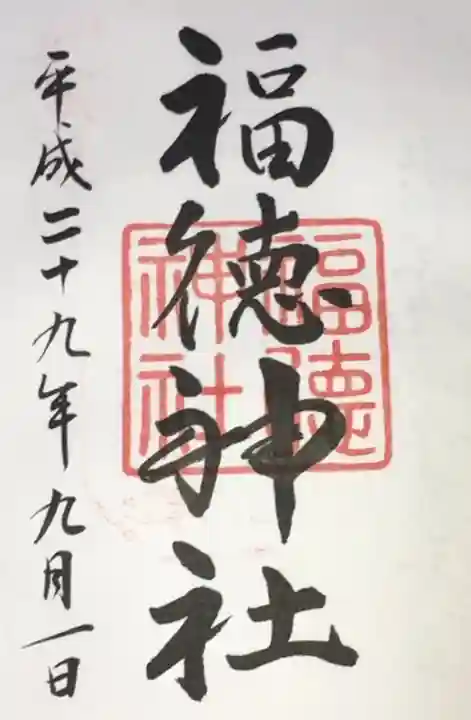 福徳神社
福徳
神社
平成二十九年九月一日